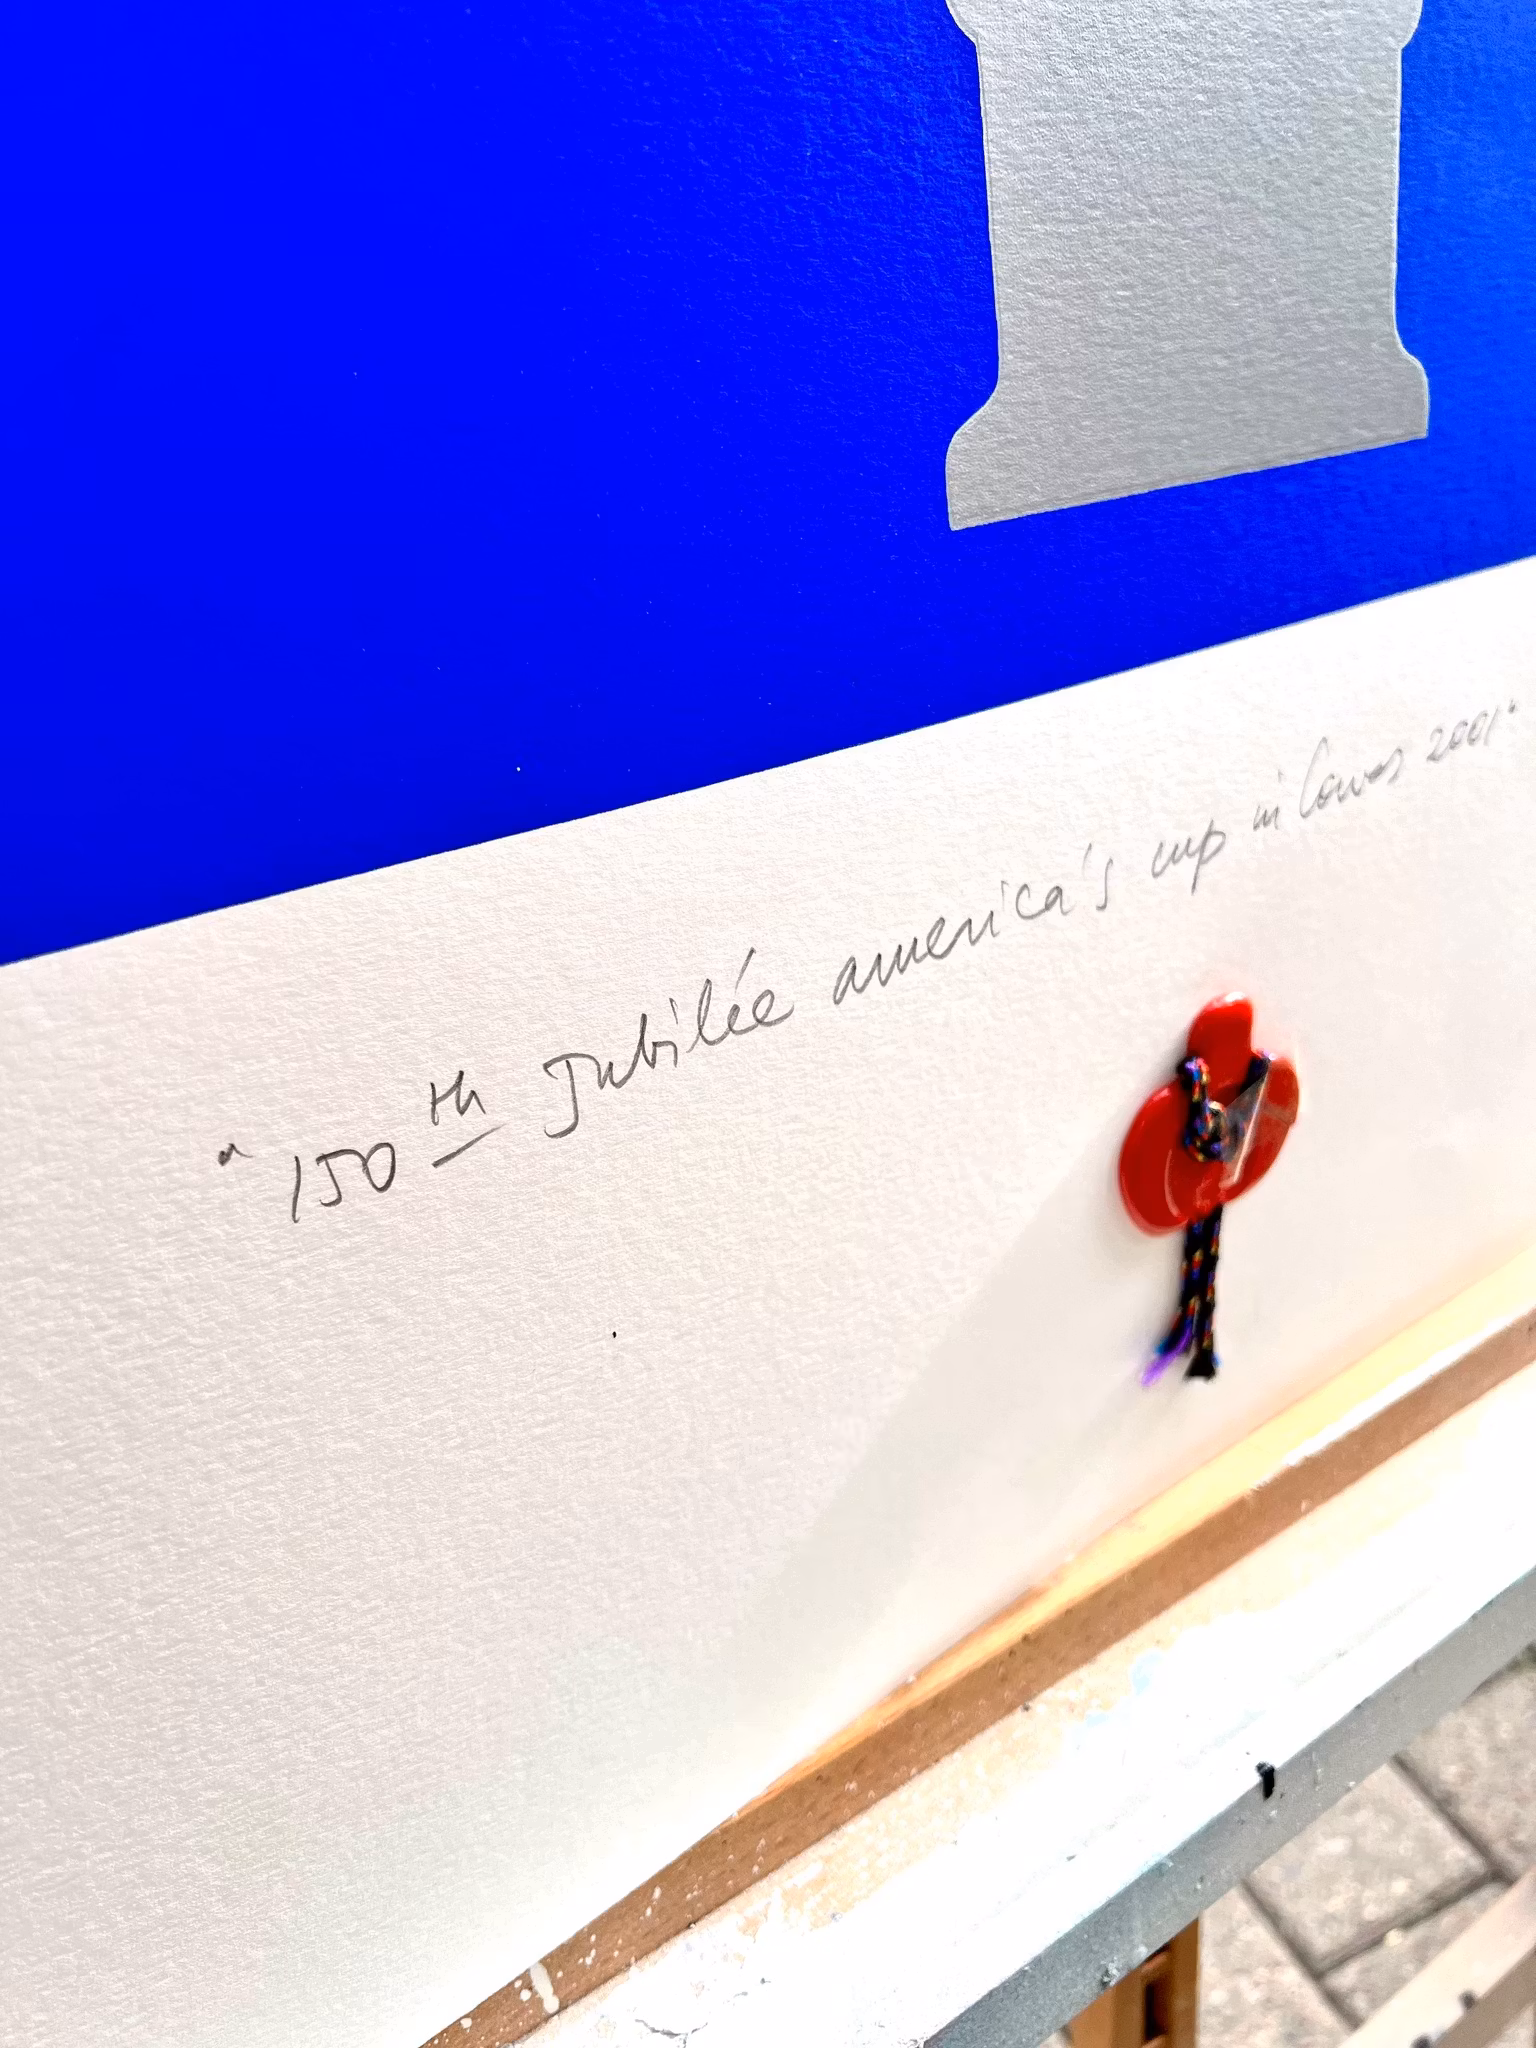 "150th Jubilée america's cup in Cowes 2001"